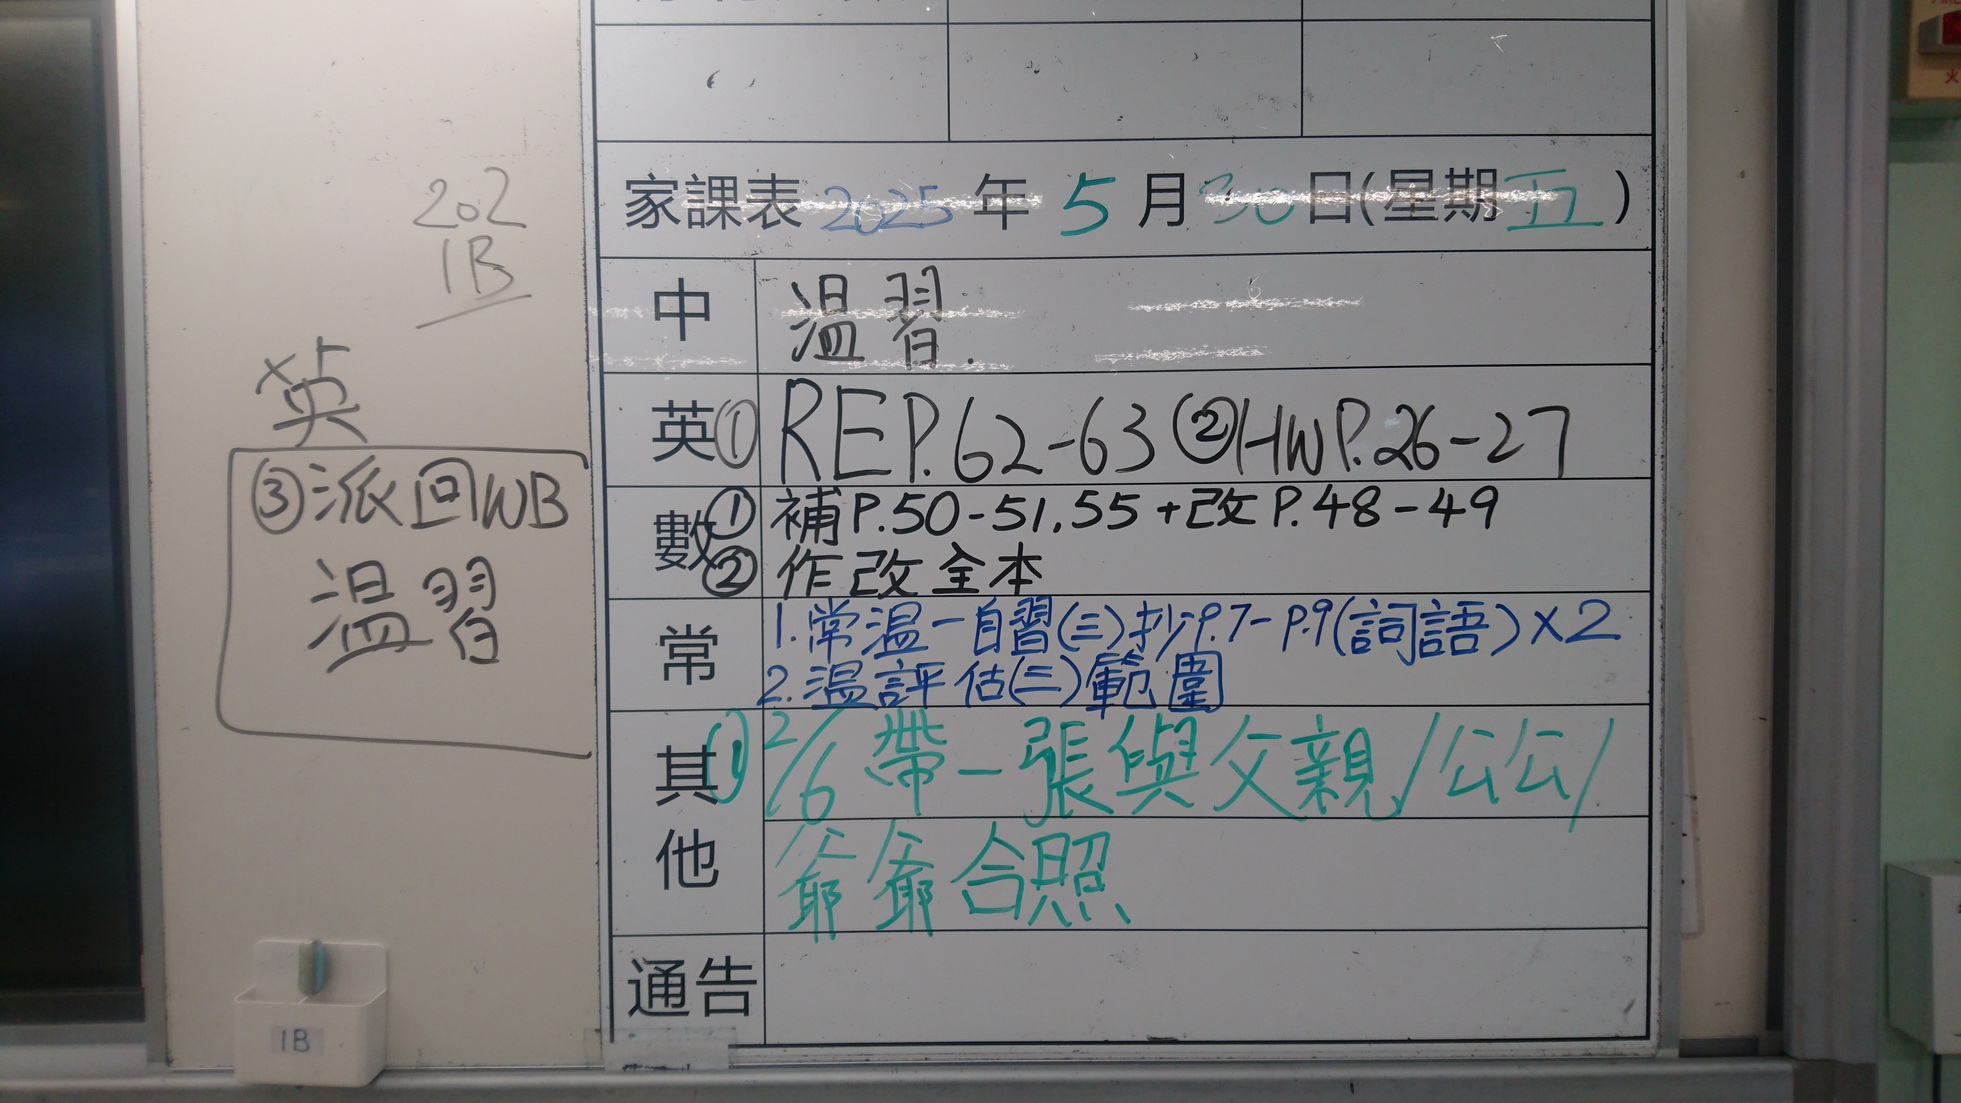 202
1B
英
③派回WB
溫習
1B
家課表 2025 年 5 月 30 日(星期 五 )
中 溫習.
英 ① REP.62-63 ② HWP.26-27
數 ① 補P.50-51,55+改P.48-49
② 作改全本
常 1.常溫一自習(三)抄P.7-P.9(詞語)×2
2.溫評估(三)範圍
其他 ① 2/6 帶一張與父親/公公/
爺爺合照
通告
火